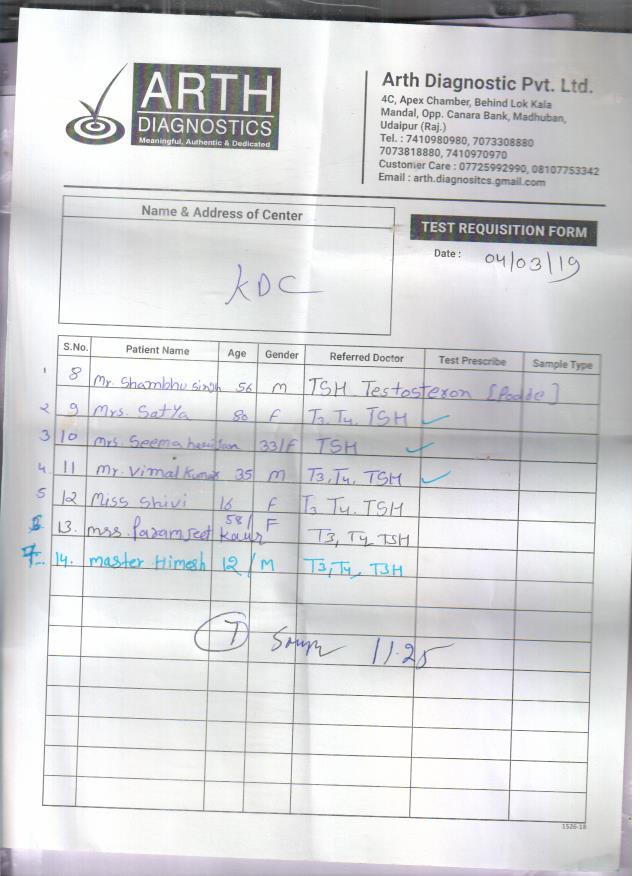 ARTH
DIAGNOSTICS
Meaningful, Authentic & Dedicated
Arth Diagnostic Pvt. Ltd.
4C, Apex Chamber, Behind Lok Kala
Mandal, Opp. Canara Bank, Madhuban,
Udaipur (Raj.)
Tel. : 7410980980, 7073308880
7073818880, 7410970970
Customer Care : 07725992990, 08107753342
Email : arth.diagnositcs.gmail.com
Name & Address of Center
KDC
TEST REQUISITION FORM
Date : 04/03/19
S.No. Patient Name Age Gender Referred Doctor Test Prescribe Sample Type
1 8 Mr. Shambhu singh 56 M TSH Testosteron
2 9 Mrs. Satya 80 F T3, T4, TSH ✓
3 10 Mrs. Seema 33/F TSH ✓
4 11 Mr. Vimal Kumar 35 M T3, T4, TSH ✓
5 12 Miss Shivi 16 F T3 T4, TSH
13. Paramjeet Kaur 58/ F T3, T4, TSH
7 14. master Himesh 12/ M T3, T4, TSH
11.25
1526-18